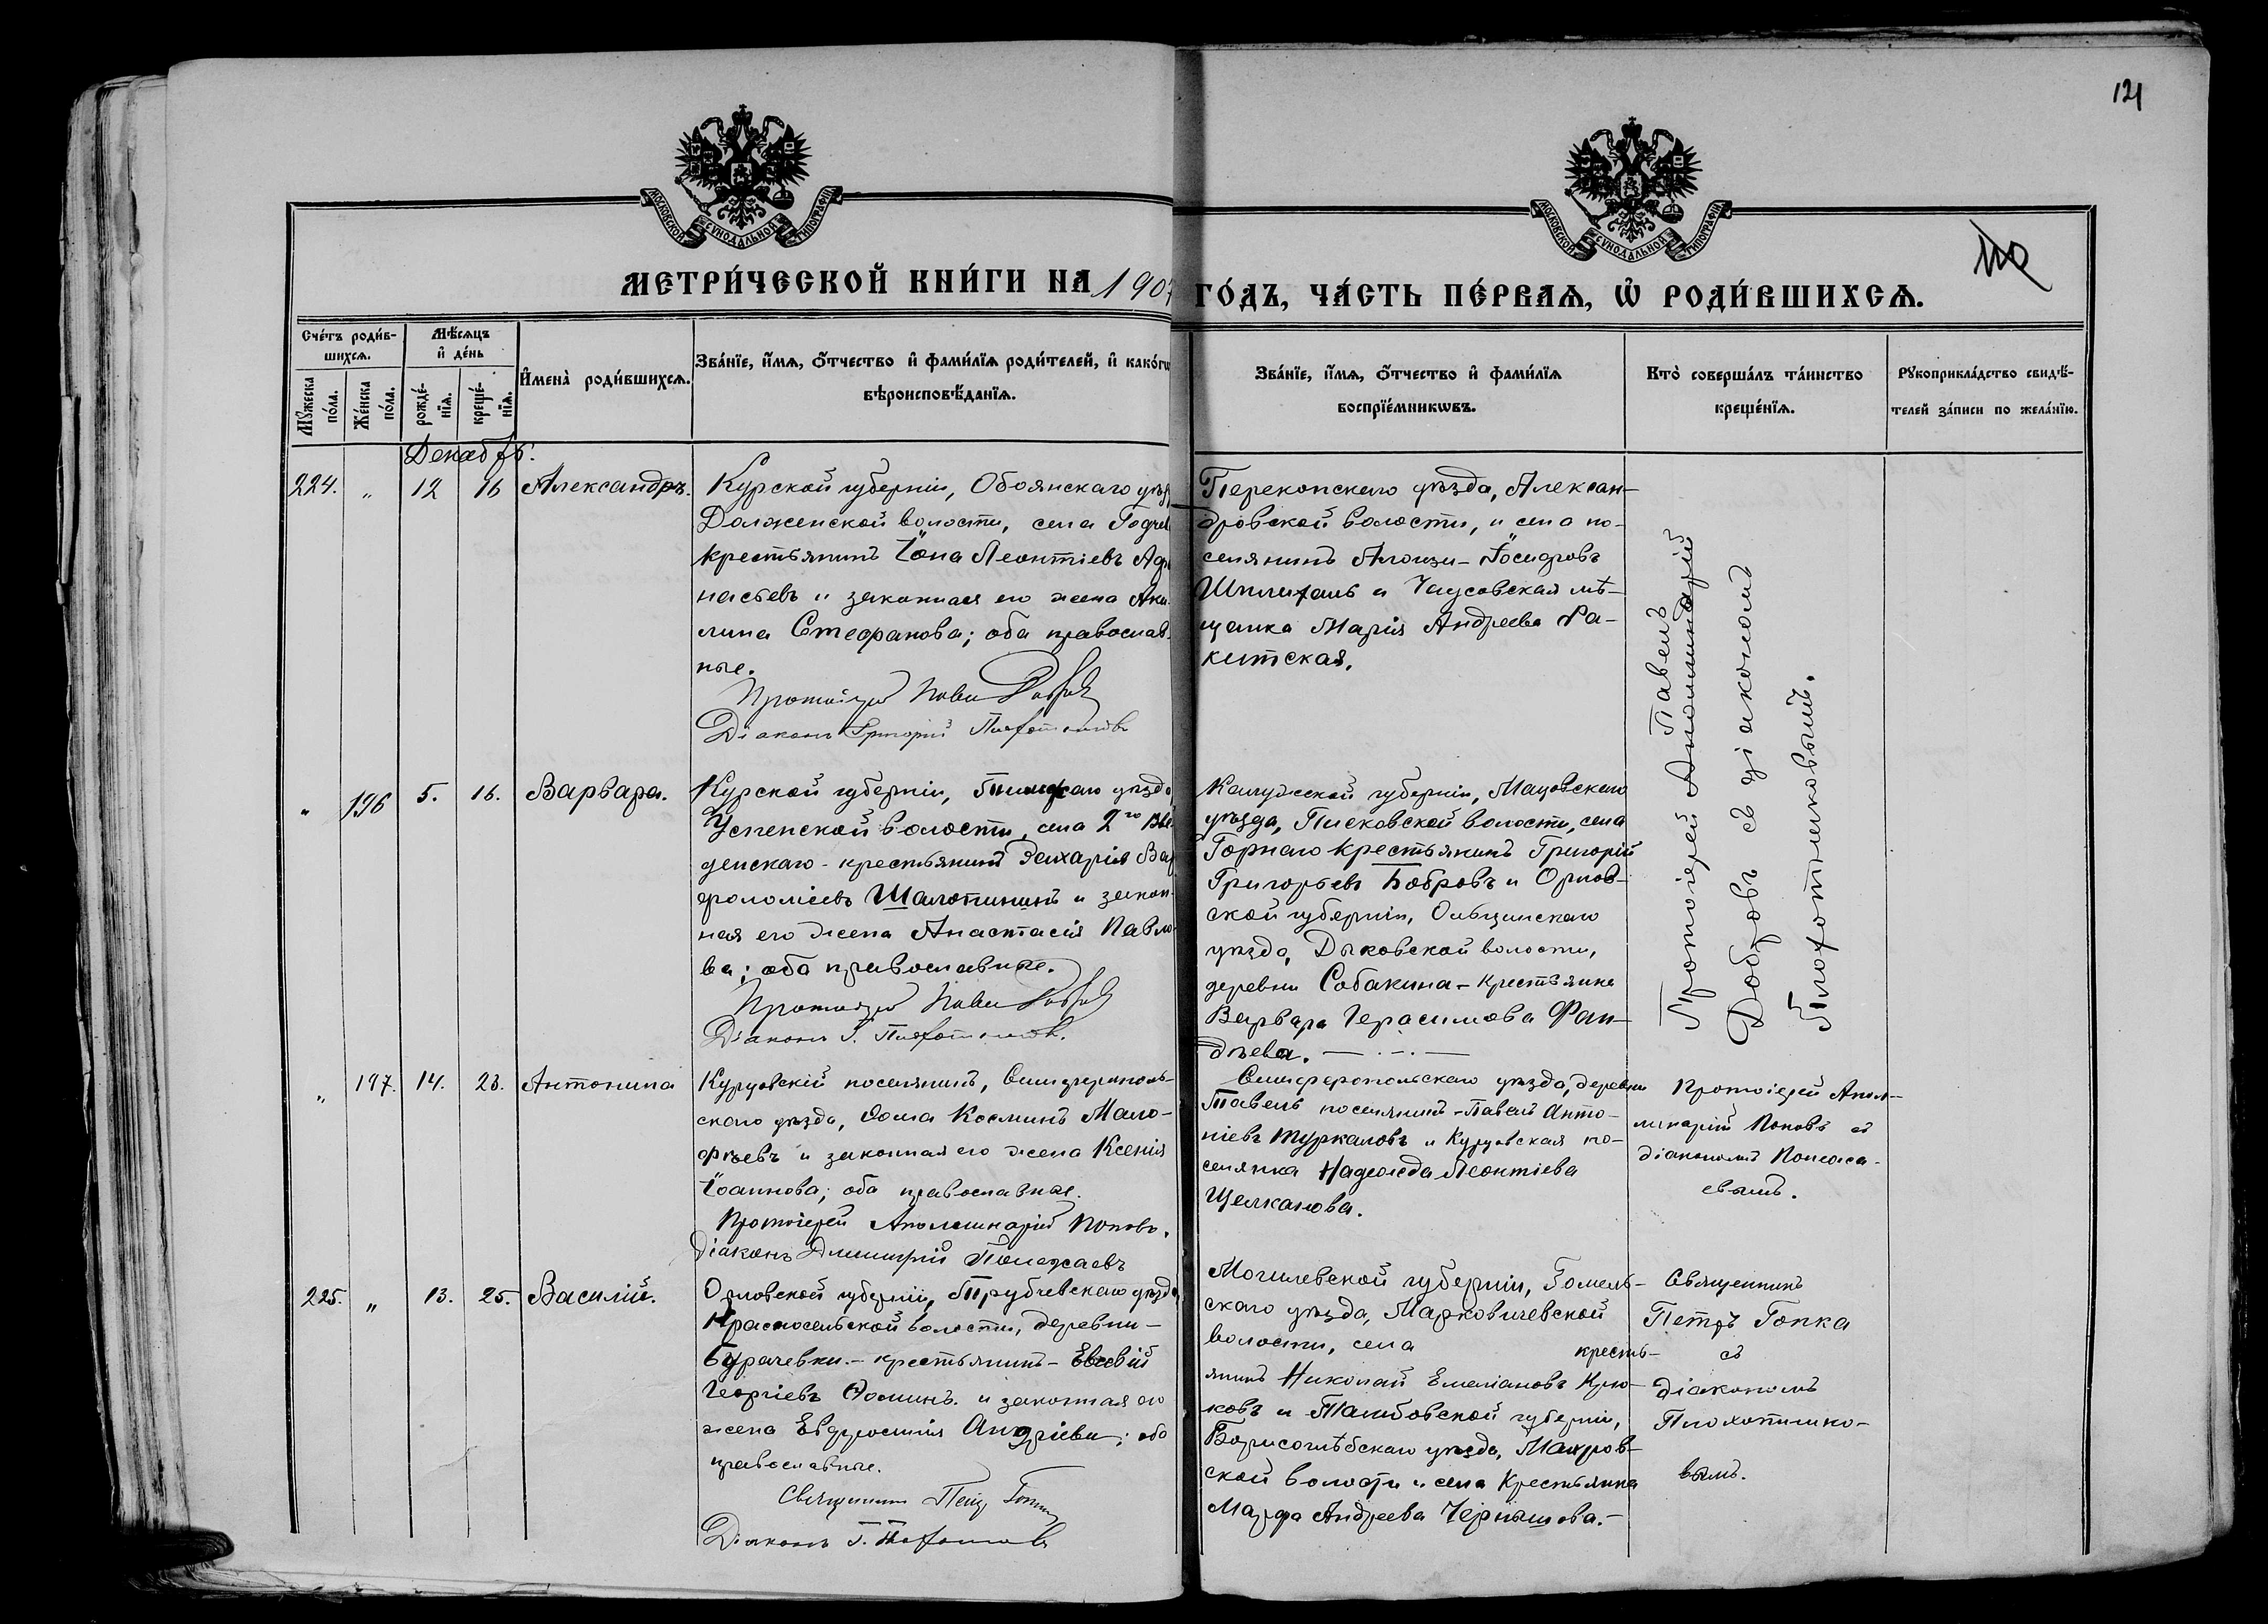 121
МОСКОВСКОЙ СѴНОДАЛЬНОЙ ТИПОГРАФІИ
МОСКОВСКОЙ СѴНОДАЛЬНОЙ ТИПОГРАФІИ
МЕТРИ́ЧЕСКОЙ КНИ́ГИ НА 1907
ГО́ДЪ, ЧА́СТЬ ПЕ́РВАѦ, Ѡ҆ РОДИ́ВШИХСѦ.
Сче́тъ роди́в-
шихсѧ.
Мꙋ́жеска
по́ла.
Же́нска
по́ла.
Мѣ́сѧцъ
и҆ де́нь
рожде́-
нїѧ.
креще́-
нїѧ.
И҆мена̀ роди́вшихсѧ.
Зва́нїе, и҆́мѧ, ѻ҆́тчество и҆ фами́лїѧ роди́телей, и҆ како́гѡ
вѣроисповѣ́данїѧ.
Зва́нїе, и҆́мѧ, ѻ҆́тчество и҆ фами́лїѧ
воспрїе́мникѡвъ.
Кто̀ соверша́лъ та́инство
креще́нїѧ.
Рꙋкоприкла́дство свидѣ́-
телей за́писи по жела́нїю.
Декабрь.
224. " 12 16 Александръ.
Курской губерніи, Обоянскаго уѣз
Долженской волости, села
крестьянинъ Іона Леонтіевъ Аѳа
насьевъ и законная его жена Аки-
лина Стефанова; оба православ-
ные.
Протоіерей Павел Добров
Діаконъ Григорій Плохотниковъ
Перекопскаго уѣзда, Алексан-
дровской волости, и села по-
селянинъ Алоизи-Іосифовъ
и Чаусовская мѣ-
щанка Марія Андреева Ра-
китская.
Протоіерей Павелъ
Добровъ съ діакономъ
Плохотниковымъ.
" 196 5. 16. Варвара.
Курской губерніи, Тимскаго уѣзда
Успенской волости, села 2го Вве-
денскаго - крестьянинъ Захарія Вар
фоломіевъ Шалопининъ и закон-
ная его жена Анастасія Павло-
ва; оба православные.
Протоіерей Павел Добров
Діаконъ Г. Плохотниковъ.
Калужской губерніи,
уѣзда, волости, села
Горнаго крестьянинъ Григорій
Григорьевъ Бобровъ и Орлов-
ской губерніи,
уѣзда, волости,
деревни Собакина - крестьянка
Варвара Герасимова Фан-
дѣева.
" 197. 14. 23. Антонина
Курцовскій поселянинъ, Симферополь-
скаго уѣзда, Ѳома Косминъ Мало-
фѣевъ и законная его жена Ксенія
Іоаннова; оба православные.
Протоіерей Аполлинарій Поповъ.
Діаконъ Димитрій Полежаевъ
Симферопольскаго уѣзда, деревни
Тавель поселянинъ - Павелъ Анто-
ніевъ Туркаловъ и Курцовская по-
селянка Надежда Леонтіева
Щелканова.
Протоіерей Апол-
линарій Поповъ съ
діакономъ Полежа-
евымъ.
225. " 13. 25. Василій.
Орловской губерніи, Трубчевскаго уѣзда
Красносельской волости, деревни -
Бурачевки. - крестьянинъ - Евсевій
Георгіевъ Ѳоминъ и законная его
жена Евфросинія Андріева; оба
православные.
Священникъ Петръ Гопка
Діаконъ Г. Плохотниковъ
Могилевской губерніи, Гомель-
скаго уѣзда, Марковичевской
волости, села кресть-
янинъ Николай Емеліановъ Крю-
ковъ и Тамбовской губерніи,
Борисоглѣбскаго уѣзда, Макров-
ской волости и села крестьянка
Марфа Андреева Чернышова. -
Священникъ
Петръ Гопка
съ
діакономъ
Плохотнико-
вымъ.